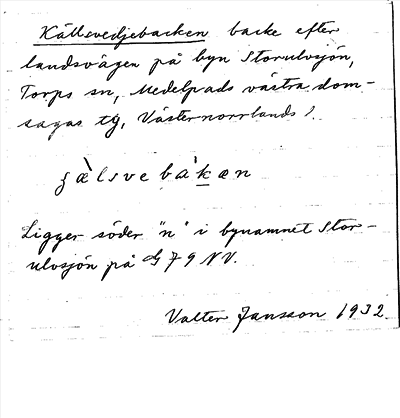 Källsvedjebacken backe efter
landsvägen på byn Storulvsjön,
Torps sn, Medelpads västra dom-
sagas tg, Västernorrlands l.
Ligger söder "n" i bynamnet Stor-
ulvsjön på G 79 NV.
Valter Jansson 1932.